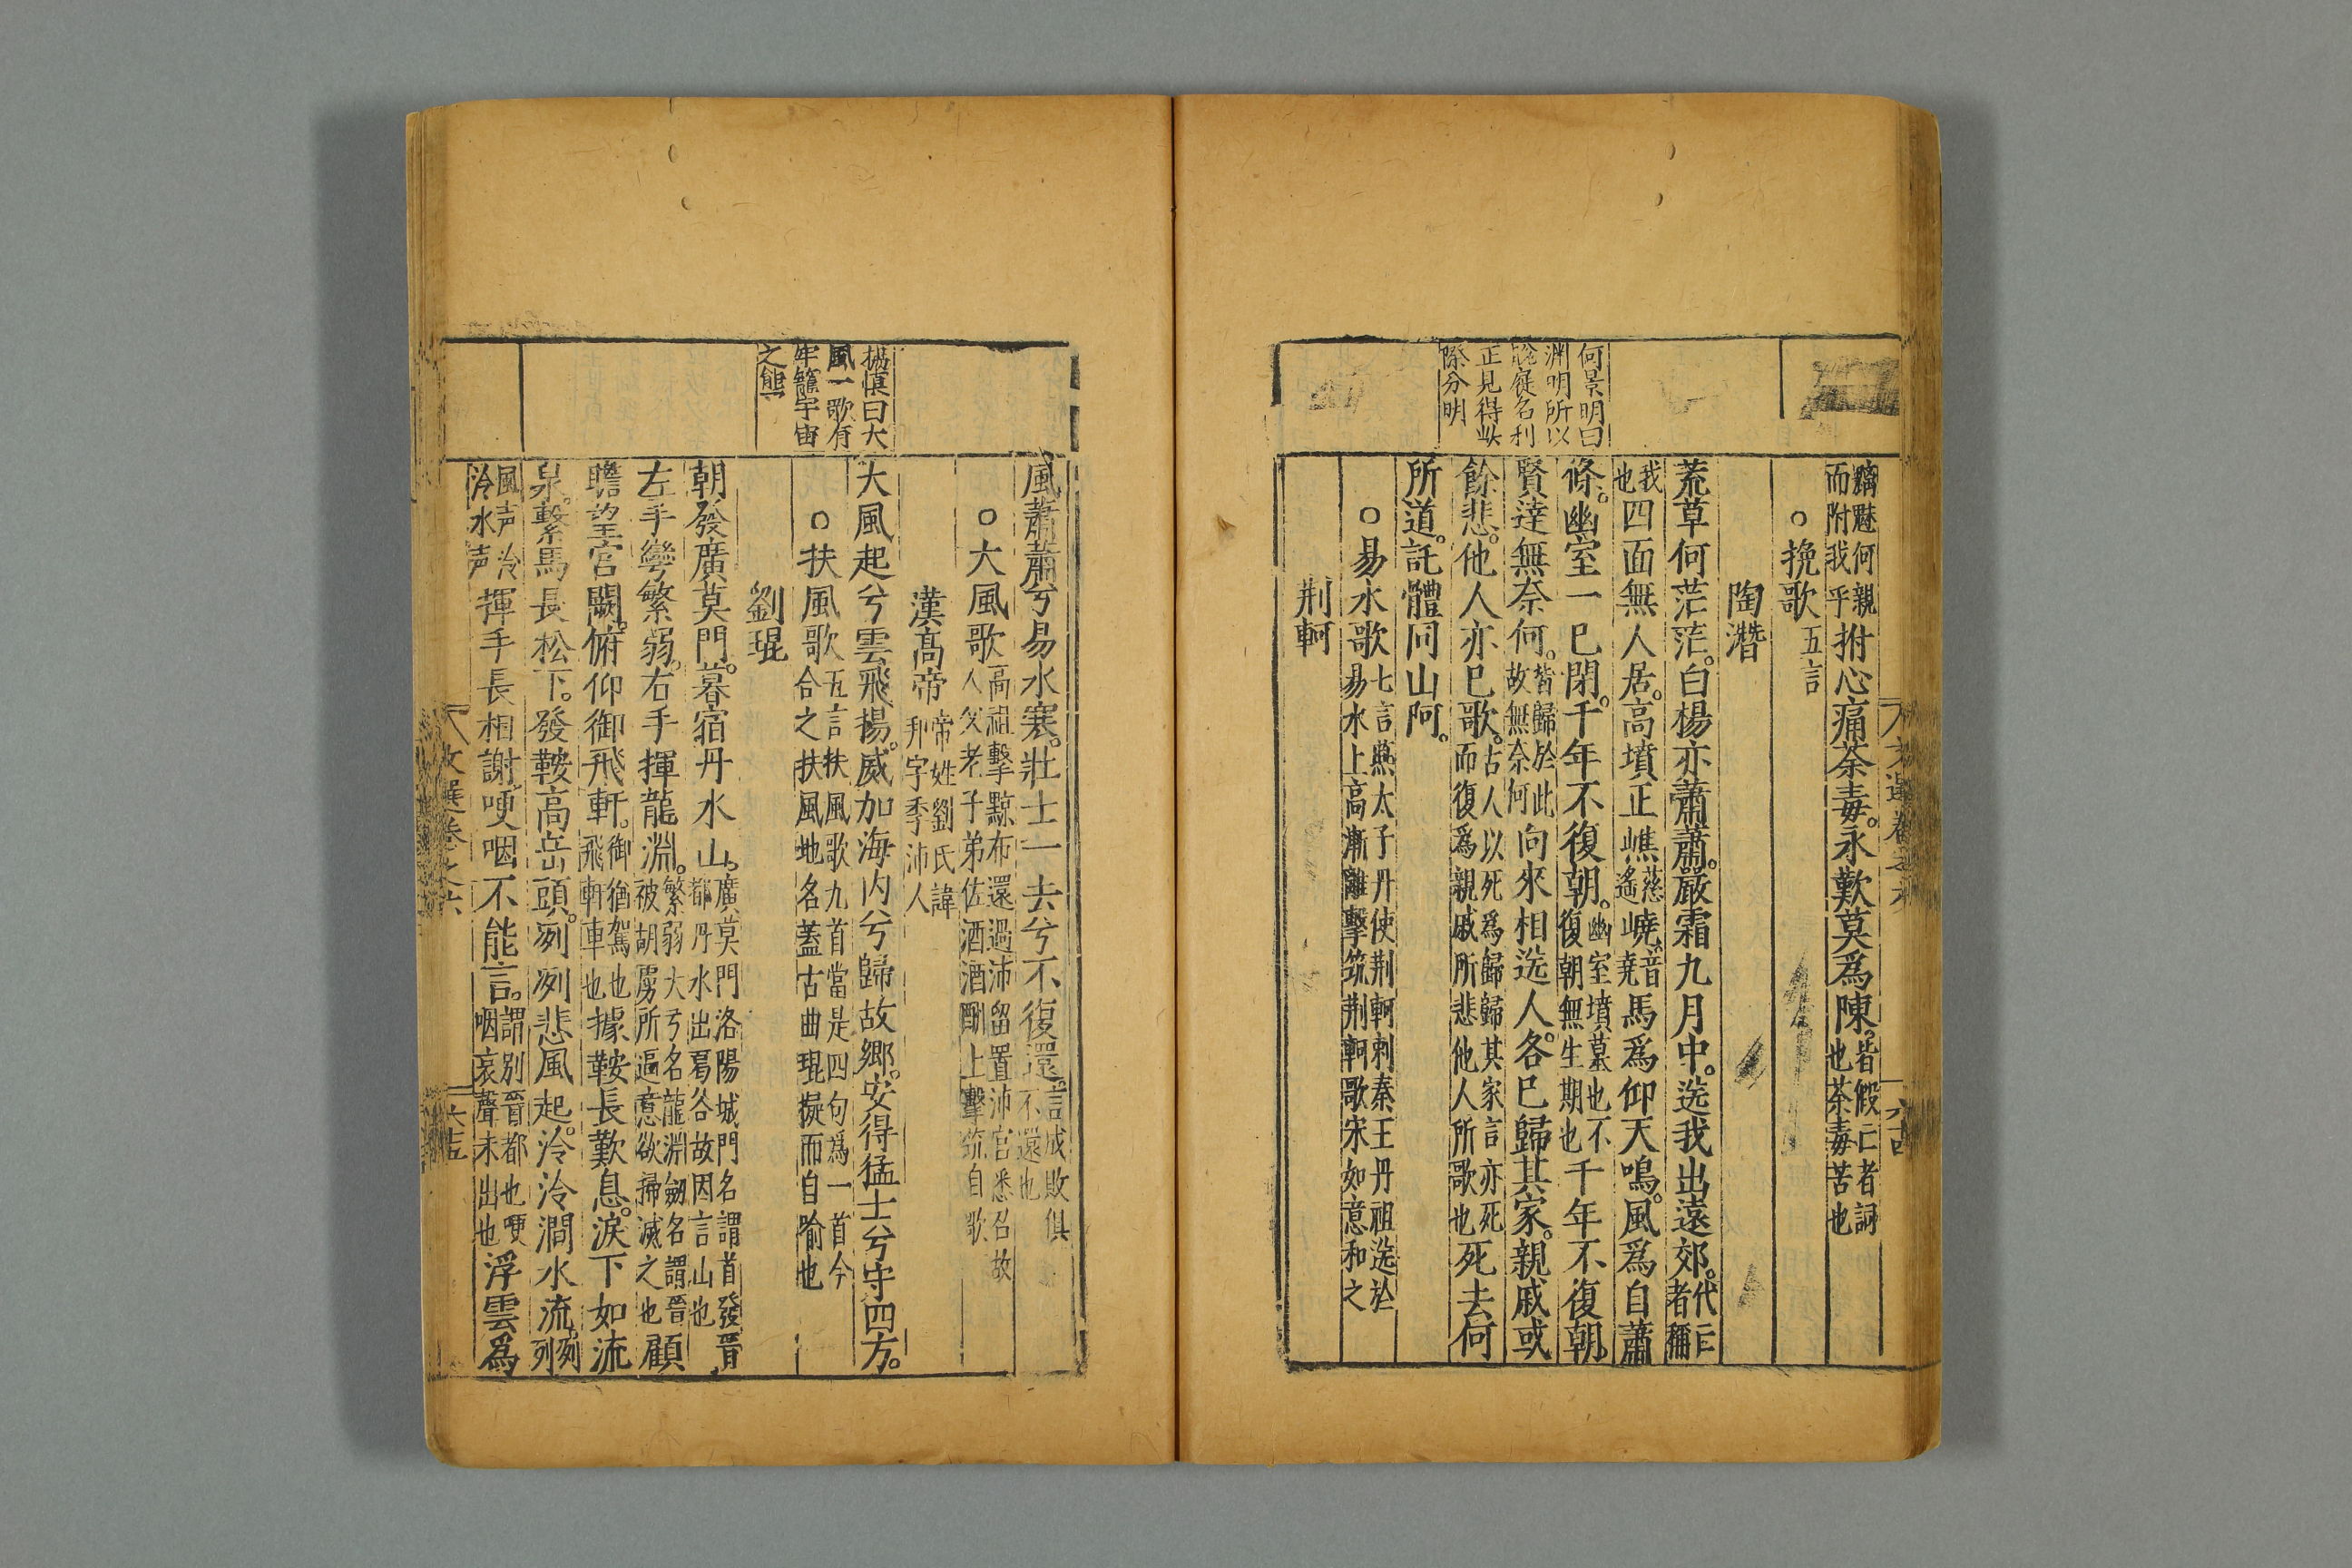 何景明曰
淵明所以
說能名利
正見得此
際分明
魑魅何親而附我乎拊心痛荼毒。永歎莫爲陳。皆假亡者詞也荼毒苦也
○挽歌五言
陶潛
荒草何茫茫。白楊亦蕭蕭。嚴霜九月中。送我出遠郊。代亡者稱
我也四面無人居。高墳正嶕慈遙嶢音堯馬爲仰天鳴。風爲自蕭
條。幽室一已閉。千年不復朝。幽室墳墓也不復朝無生期也千年不復朝。
賢達無奈何。皆歸於此故無奈何向來相送人。各已歸其家。親戚或
餘悲。他人亦已歌。古人以死爲歸歸其家言亦死而復爲親戚所悲他人所歌也死去何
所道。託體同山阿。
○易水歌七言燕太子丹使荆軻刺秦王丹祖送於易水上高漸離擊筑荆軻歌宋如意和之
荆軻
文選卷之六
六十四
楊慎曰大
風一歌有
牢籠宇宙
之態
風蕭蕭兮易水寒。壯士一去兮不復還。言成敗俱不還也
○大風歌高祖擊黥布還過沛留置沛宮悉召故人父老子弟佐酒酒酣上擊筑自歌
漢高帝帝姓劉氏諱邦字季沛人
大風起兮雲飛揚。威加海內兮歸故鄉。安得猛士兮守四方。
○扶風歌五言扶風歌九首當是四句爲一首今合之扶風地名蓋古曲琨擬而自喻也
劉琨
朝發廣莫門。暮宿丹水山。廣莫門洛陽城門名謂首發晉都丹水出曷谷故因言山也
左手彎繁弱。右手揮龍淵。繁弱大弓名龍淵劒名謂晉被胡虜所逼意欲掃滅之也顧
瞻望宮闕。俯仰御飛軒。御猶駕也飛軒車也據鞍長歎息。淚下如流
泉。繫馬長松下。發鞍高岳頭。冽冽悲風起。泠泠澗水流。冽冽
風声泠泠水声揮手長相謝。哽咽不能言。謂別晉都也哽咽哀聲未出也浮雲爲
文選卷之六
六十五